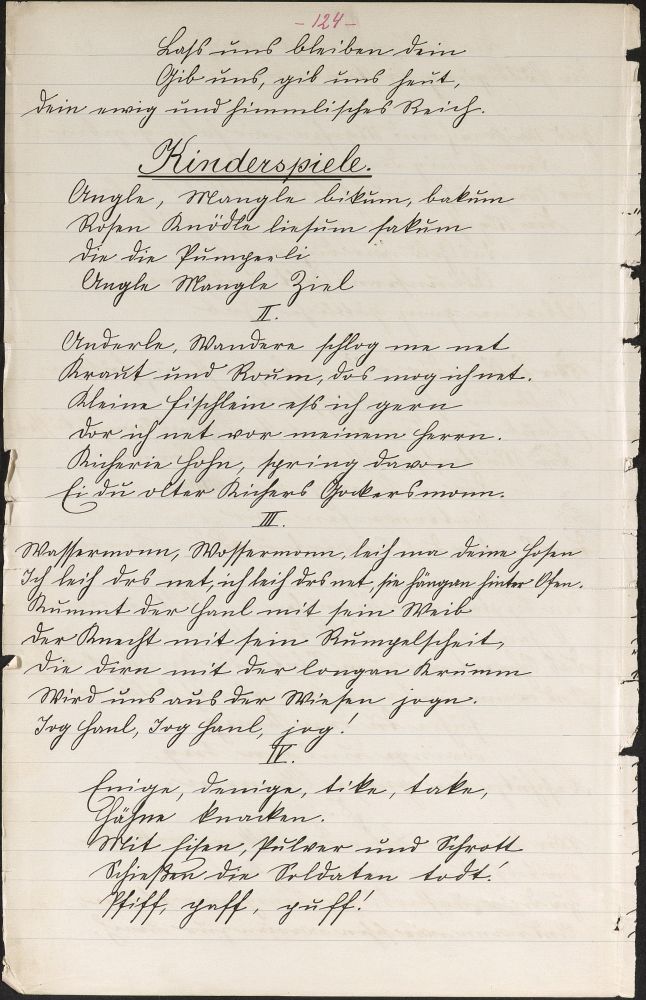 - 124 -
Laß uns bleiben dein
Gib uns, gib uns heut,
dein ewig und himmlisches Reich.
Kinderspiele.
Angle, Mangle bikum, bakum
Rosen Knödle liesum sakum
die die Pumperli
Angle Mangle Ziel
II.
Anderle, Wandere schlog me net
Kraut und Roum, dos mog ich net.
Kleine Fischlein eß ich gern
dor ich net vor meinem Herrn.
Kicherie Hohn, spring davon
Ei du olter Kichers Gockersmonn.
III.
Wassermonn, Wossermonn, leih ma deine Hosen
Ich leih drs net, ich leih drs net, sie hängan hinter Ofen.
Kummt der Hanl mit sein Weib
Der Knecht mit sein Rumpelscheit,
Die Dirn mit der longan Krumm
Wird uns aus der Wiesen jogn.
Jog Hanl, Jog Hanl, jog!
IV.
Enige, denige, tike, take,
Hähne knacken.
Mit Eisen, Pulver und Schrott
Schießen die Soldaten todt!
Piff, paff, puff!